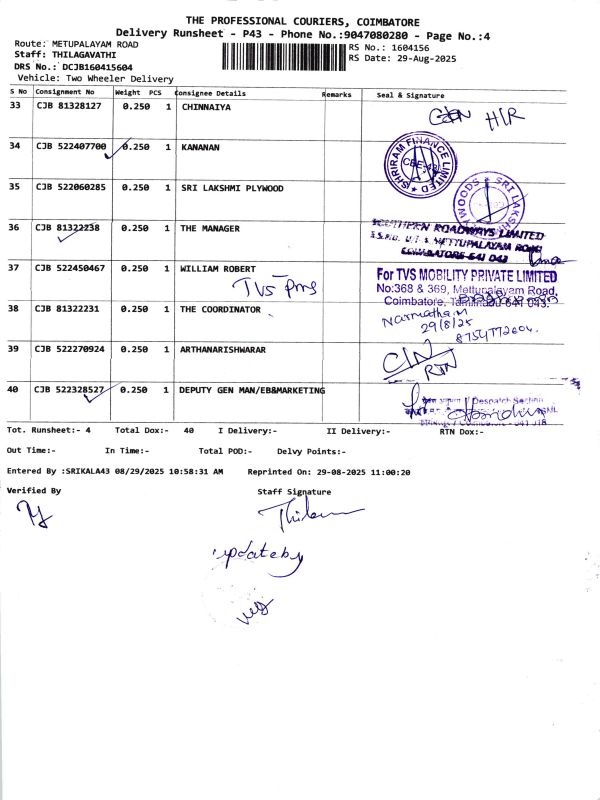 THE PROFESSIONAL COURIERS, COIMBATORE
Delivery Runsheet - P43 - Phone No.:9047080280 - Page No.:4
Route: METUPALAYAM ROAD
RS No.: 1604156
Staff: THILAGAVATHI
RS Date: 29-Aug-2025
DRS No.: DCJB160415604
Vehicle: Two Wheeler Delivery
S No Consignment No Weight PCS Consignee Details Remarks Seal & Signature
33 CJB 81328127 0.250 1 CHINNAIYA
34 CJB 522407700 0.250 1 KANANAN
SHRIRAM FINANCE LIMITED
35 CJB 522060285 0.250 1 SRI LAKSHMI PLYWOOD
36 CJB 81322238 0.250 1 THE MANAGER
SOUTHERN ROADWAYS LIMITED
METTUPALAYAM ROAD
COIMBATORE-641 043
37 CJB 522450467 0.250 1 WILLIAM ROBERT
TVS pms
For TVS MOBILITY PRIVATE LIMITED
No:368 & 369, Mettupalayam Road,
Coimbatore, Tamilnadu-641 043.
38 CJB 81322231 0.250 1 THE COORDINATOR
29/8/25
39 CJB 522270924 0.250 1 ARTHANARISHWARAR
RTN
40 CJB 522328527 0.250 1 DEPUTY GEN MAN/EB&MARKETING
Despatch Section
Tot. Runsheet:- 4 Total Dox:- 40 I Delivery:- II Delivery:- RTN Dox:-
Out Time:- In Time:- Total POD:- Delvy Points:-
Entered By :SRIKALA43 08/29/2025 10:58:31 AM Reprinted On: 29-08-2025 11:00:20
Verified By Staff Signature
Thilaga
update by